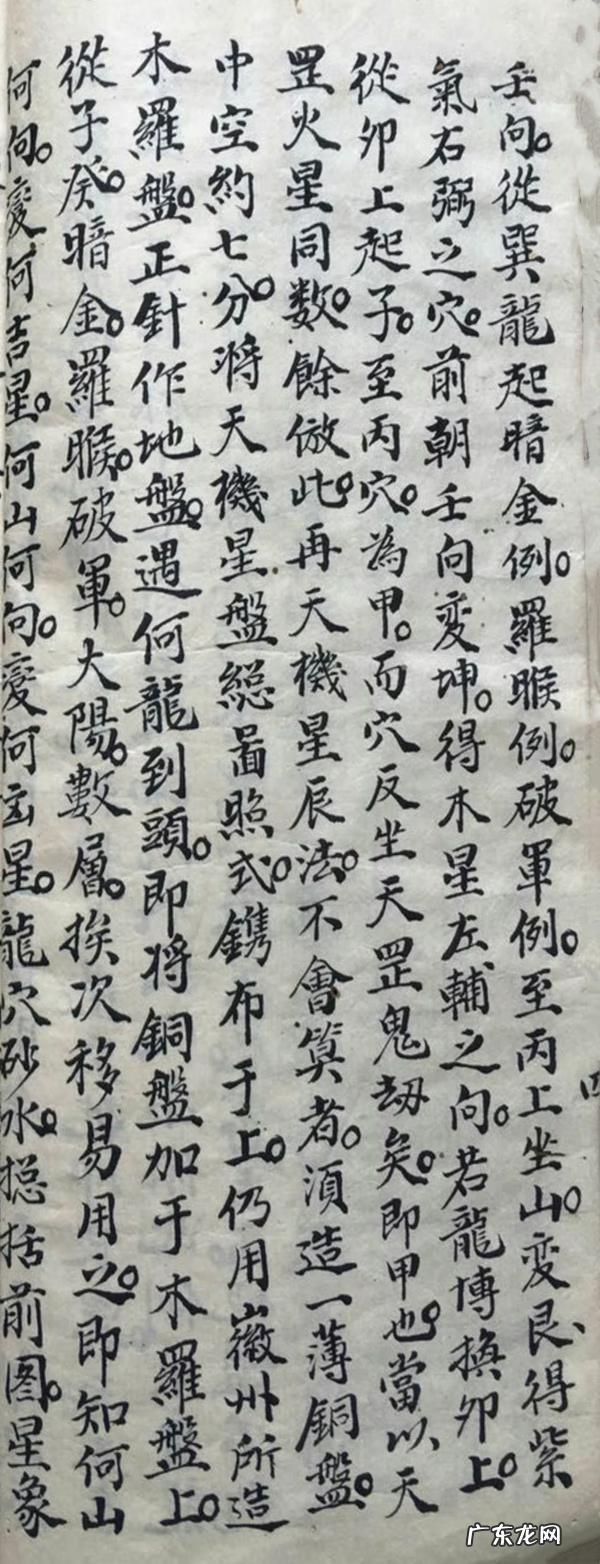 壬向。從巽龍起暗金例。羅睺例。破軍例。至丙上坐山。变艮、得紫
氣右弼之穴。前朝壬向変坤。得木星左輔之向。若龍博換卯上。
從卯上起子。至丙穴。為甲。而穴反坐天罡鬼劫矣。即甲也。當以天
罡火星同数。餘倣此。再天機星辰法。不會算者。須造一薄銅盤。
中空約七分。將天機星盤総畐照式。鐫布于上。仍用徽州所造
木羅盤。正針作地盤。遇何龍到頭。即将銅盤加于木羅盤上。
從子癸。暗金。羅睺。破軍。大陽。數層。挨次移易用之。即知何山
何向。变何吉星。何山何向。变何玄星。龍穴砂水。捴括前图。星象
四
广东龙网